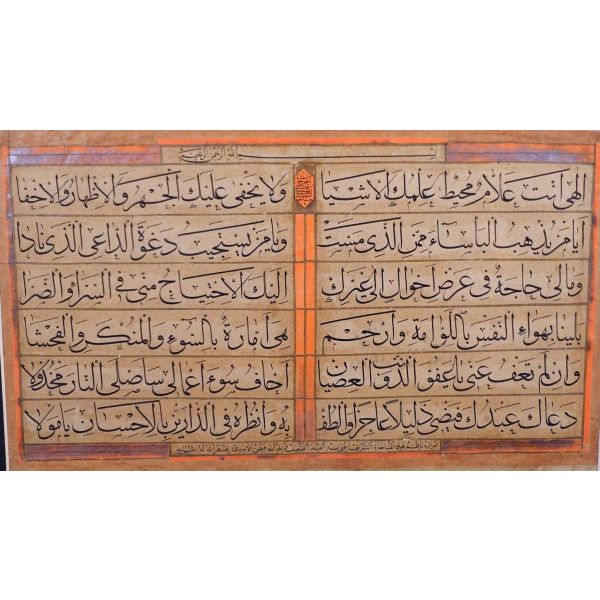 بسم الله الرحمن الرحيم
الهي انت علام محيط علمك الاشيا ولا يخفى عليك الجهر والاظهار والاخفا
ايا من يذهب البأساء ممن الذي مست ويا من يستجيب دعوة الداعي الذي نادا
ومالي حاجة في عرض احوالي الى غيرك اليك الاحتياج مني في السرا والضرا
بلينا بهواء النفس باللوامة وان حم هي امارة بالسوء والمنكر والفحشا
وان لم تعف عني يا عفو الذنب والعصيان اخاف سوء اعمالي ساصلى النار مخذولا
دعاك عبدك فيضي ذليلا عاجزا والطف به وانظره في الدارين بالاحسان يا مولا